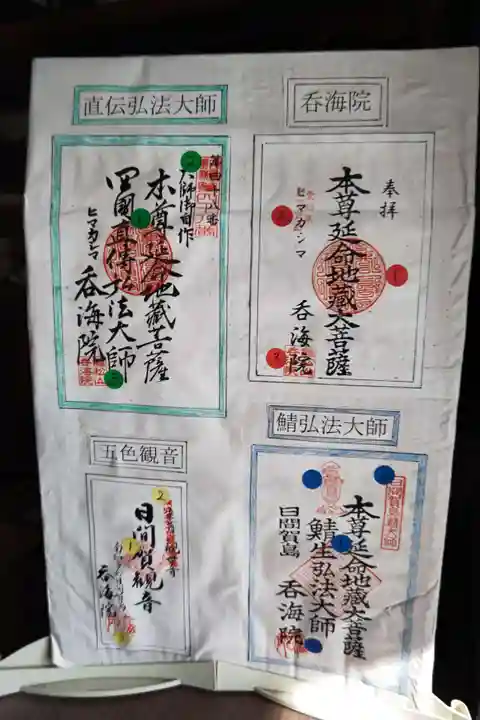 直伝弘法大師
第四十八番
大師御自作
本尊延命地蔵菩薩
四國直傳弘法大師
ヒマカシマ
呑海院
呑海院
奉拝
本尊延命地蔵大菩薩
ヒマカシマ
呑海院
五色観音
2
日間賀観音
1
呑海院
鯖弘法大師
本尊延命地蔵大菩薩
鯖生弘法大師
日間賀島
呑海院